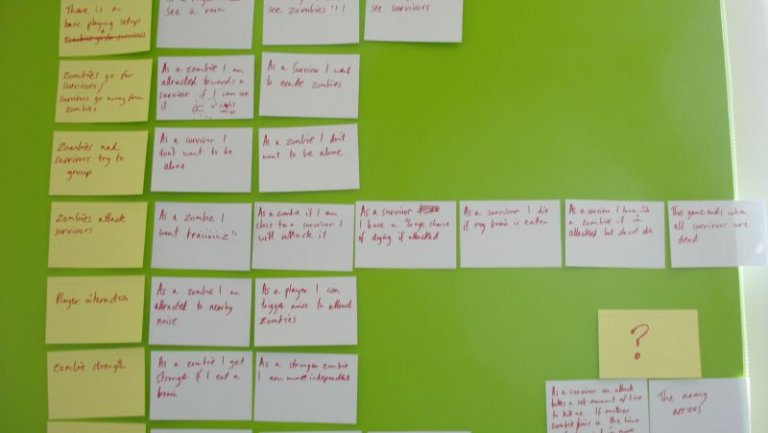 There is a
basic playing setup
see a room
see zombies!!!
see survivors
Zombies go for
survivors/
survivors go away from
zombies
As a zombie I am
attracted towards a
survivor if I can see
it
As a survivor I want
to evade zombies
Zombies and
survivors try to
group
As a survivor I
don't want to be
alone
As a zombie I don't
want to be alone
Zombies attack
survivors
As a zombie I
want
As a zombie if I am
close to a survivor I
will attack it
As a survivor
I have a chance
of dying if attacked
As a survivor I die
if my brain is eaten
As a survivor I turn into
a zombie if I'm
attacked but do not die
The game ends when
all survivors are
dead
Player interaction
As a zombie I am
attracted to nearby
noise
As a player I can
trigger noise to attract
zombies
Zombie strength
As a zombie I get
stronger if I eat a
brain
As a stronger zombie
I am more independent
?
As a survivor an attack
takes a set amount of time
to kill me. If another
zombie joins in the time
The army
arrives